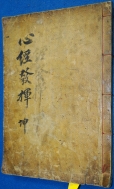 心經發揮 坤